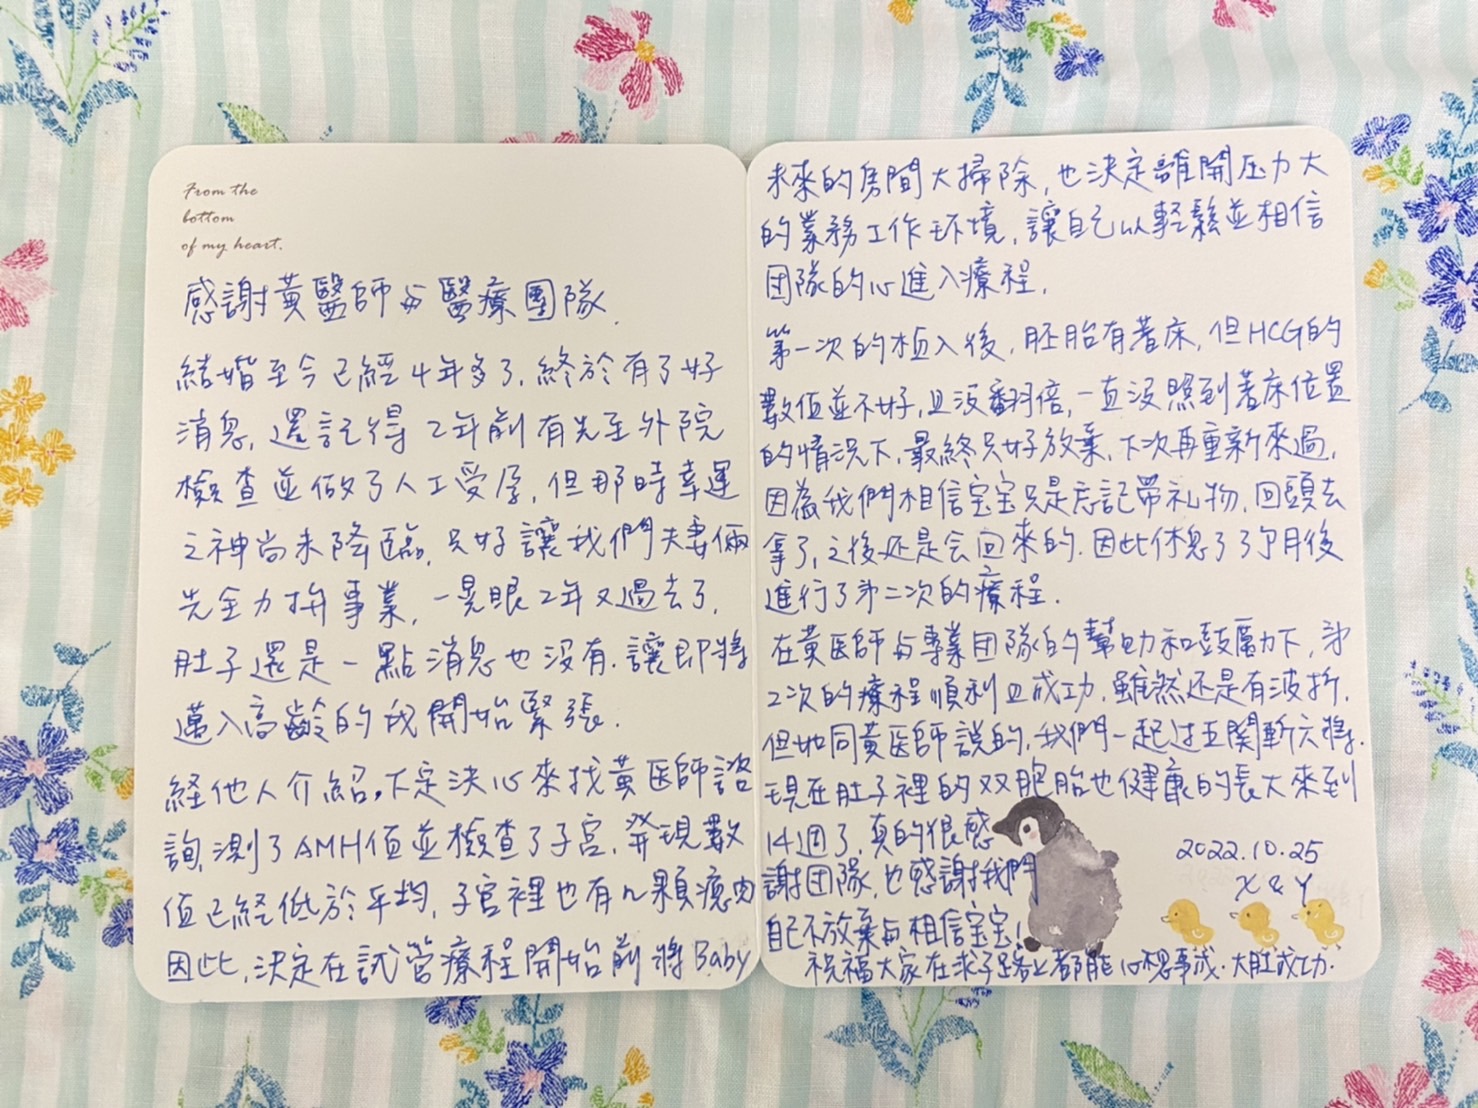 From the
bottom
of my heart.
感謝黃醫師与醫療團隊.
結婚至今已經4年多了,終於有了好
消息,還記得2年前有先至外院
檢查並做了人工受孕,但那時幸運
之神尚未降臨,只好讓我們夫妻倆
先全力拚事業,一晃眼2年又過去了,
肚子還是一點消息也沒有,讓即將
邁入高齡的我開始緊張.
経他人介紹,下定決心來找黃医師諮
詢,測了AMH值並檢查了子宮,発現數
值已経低於平均,子宮裡也有几顆瘜肉
因此,決定在試管療程開始前將Baby
未來的房間大掃除,也決定離開压力大
的業務工作环境,讓自己以輕鬆並相信
团隊的心進入療程.
第一次的植入後,胚胎有著床,但HCG的
數值並不好,且沒翻倍,一直沒照到著床位置
的情況下,最終只好放棄,下次再重新來過,
因為我們相信宝宝只是忘記帶礼物,回頭去
拿了,之後还是会回來的.因此休息了3个月後
進行了第二次的療程.
在黃医師与專業团隊的幫助和鼓厲下,第
2次的療程順利且成功.雖然还是有波折,
但如同黃医師說的,我們一起过五関斬六将.
現在肚子裡的双胞胎也健康的長大來到
14週了,真的很感
謝团隊,也感謝我們
自己不放棄与相信宝宝!
祝福大家在求子路上都能心想事成.大肚成功.
2022.10.25
X & Y